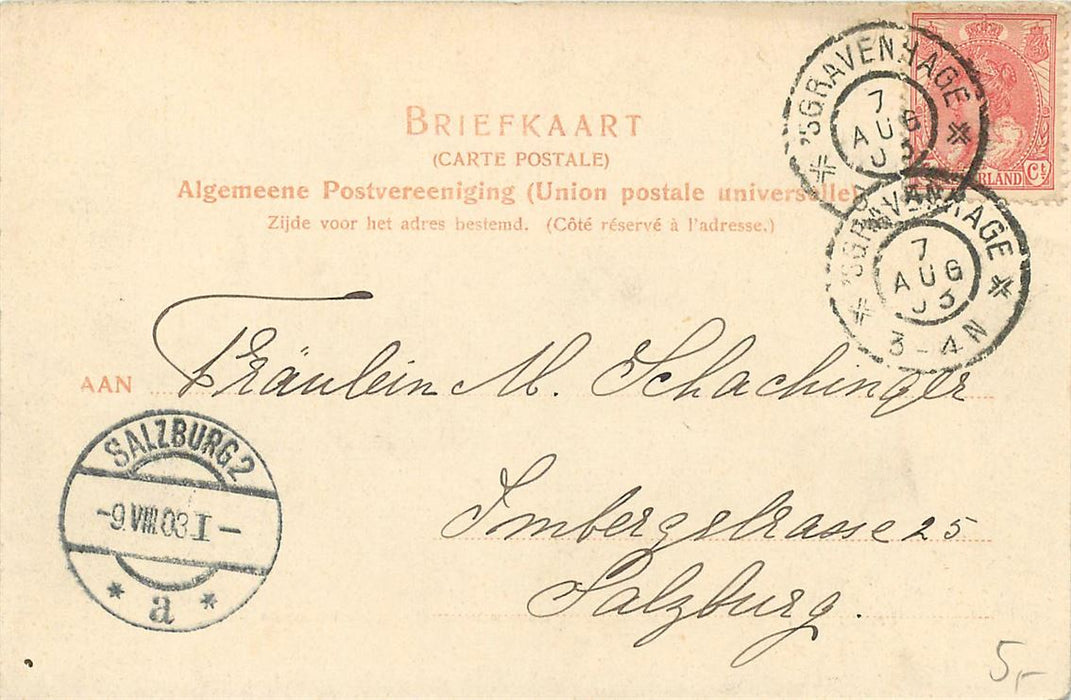 BRIEFKAART
(CARTE POSTALE)
Algemeene Postvereeniging (Union postale universelle)
Zijde voor het adres bestemd. (Côté réservé à l'adresse.)
'SGRAVENHAGE
7
AUG
03
Ct
'SGRAVENHAGE
7
AUG
03
3-4N
AAN Fräulein M. Schachinger
Imbergstrasse 25
Salzburg.
SALZBURG 2
-9 VIII.03 I-
* a *
5,-